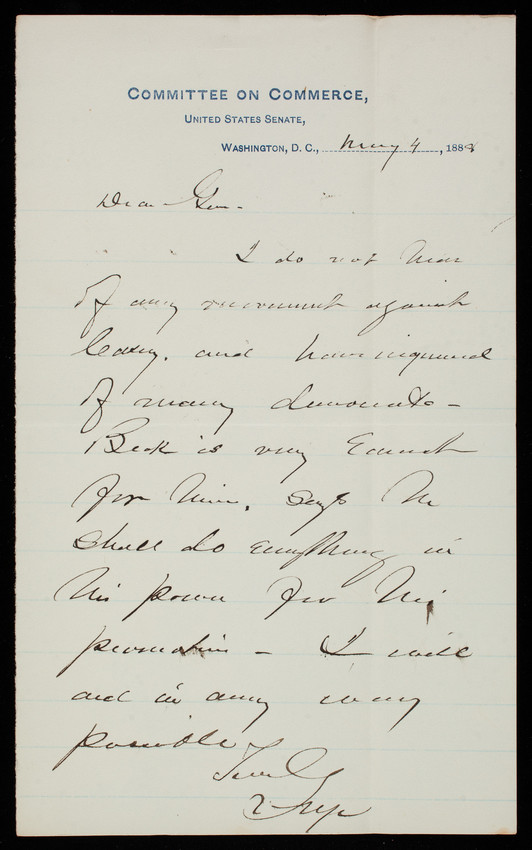 COMMITTEE ON COMMERCE,
UNITED STATES SENATE,
WASHINGTON, D. C., May 4, 1888
Dear Gen.
I do not hear
of any movement against
Casey. and have inquired
of many democrats –
Beck is very Earnest
for him. Says he
shall do everything in
his power for his
promotion – I will
aid in any way
possible
Truly